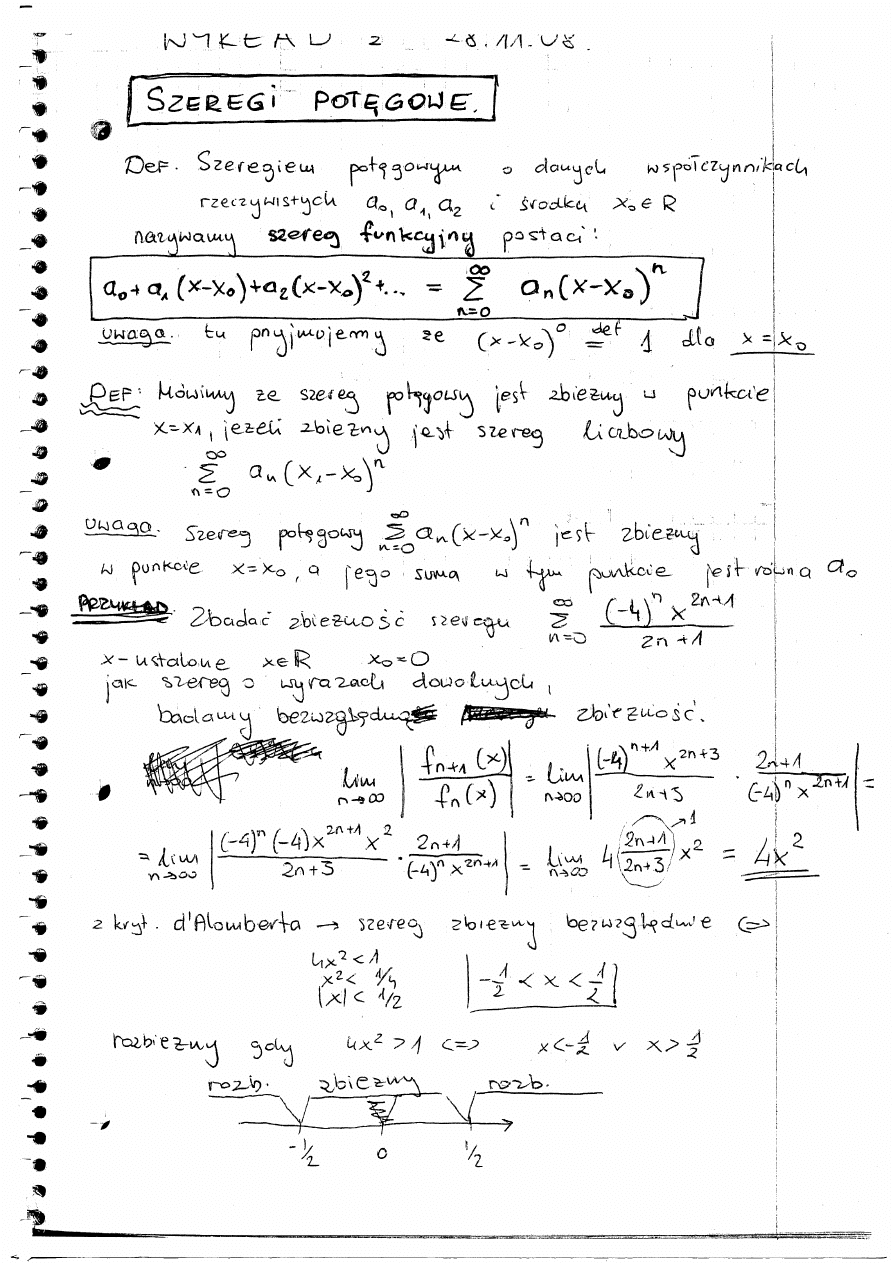 WYKŁAD z 28.11.08.
SZEREGI POTĘGOWE.
DEF. Szeregiem potęgowym o danych współczynnikach
rzeczywistych a₀, a₁, a₂ i środku x₀ ∈ R
nazywamy szereg funkcyjny postaci:
a₀ + a₁(x-x₀) + a₂(x-x₀)² + ... = ∞ Σ n=0 aₙ(x-x₀)ⁿ
uwaga. tu pnyjmojemy ze (x-x₀)⁰ def = 1 dla x = x₀
DEF: Mówimy ze szereg potęgowy jest zbiezny w punkcie
x=x₁, jezeli zbiezny jest szereg liczbowy
∞ Σ n=0 aₙ(x₁-x₀)ⁿ
uwaga. Szereg potęgowy ∞ Σ n=0 aₙ(x-x₀)ⁿ jest zbiezny
w punkcie x=x₀, a jego suma w tym punkcie jest równa a₀
PRZYKŁAD. Zbadać zbiezność szeregu ∞ Σ n=0 (-4)ⁿ x²ⁿ⁺¹ / 2n+1
x-ustalone x∈R x₀=0
jak szereg o wyrazach dowolnych,
badamy bezwzględną zbiezność.
lim n→∞ | fₙ₊₁(x) / fₙ(x) | = lim n→∞ | (-4)ⁿ⁺¹ x²ⁿ⁺³ / 2n+3 · 2n+1 / (-4)ⁿ x²ⁿ⁺¹ | =
= lim n→∞ | (-4)ⁿ (-4) x²ⁿ⁺¹ x² / 2n+3 · 2n+1 / (-4)ⁿ x²ⁿ⁺¹ | = lim n→∞ 4 (2n+1 / 2n+3) →1 x² = 4x²
z kryt. d'Alomberta → szereg zbiezny bezwzględnie <=>
4x² < 1
x² < 1/4
|x| < 1/2 -1/2 < x < 1/2
rozbiezny gdy 4x² > 1 <=> x<-1/2 v x>1/2
rozb. zbiezny rozb.
-1/2 0 1/2